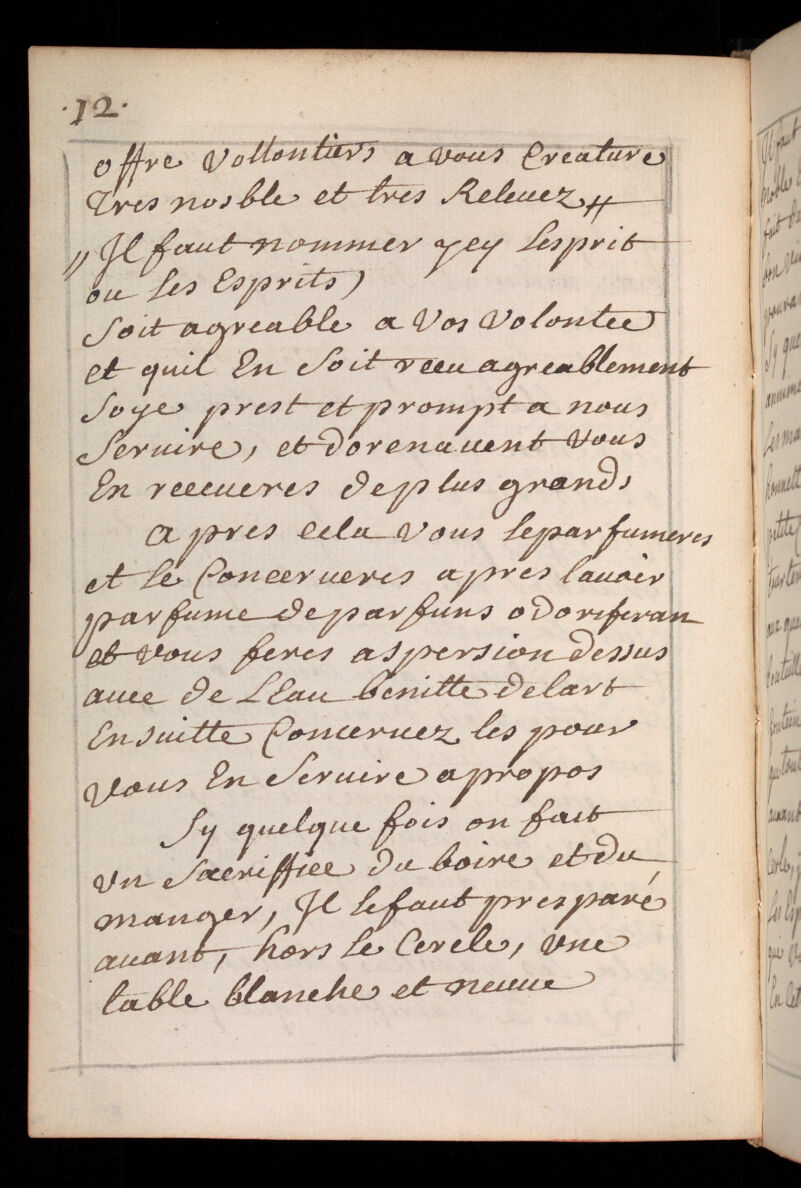 .12.
offre Vollontiers a vous Creature
Tres nosble et tres Releuez //
// Jl faut nommer ycy Lesprit
ou Les Esprits)
Soit agreable a Vos Volontee
et quil En Soit receu agreablement
Soye prest et prompt a nous
Seruire, et dorenauent Vous
En receueres de plus grands
apres cela Vous Le parfumeres
et Le Concerueres apres lauoir
parfume de parfuns odoriferan
et vous feres aspersion dessus
auec de LEau benitte de lart
Ensuitte Conceruez les pour
Vous En Seruire a propos
Sy quelque fois on fait
Vn Sacriffice du boire et du
manger, Jl Le faut presparé
auant, hors Le Cercle, Vne
table blanche et neuue